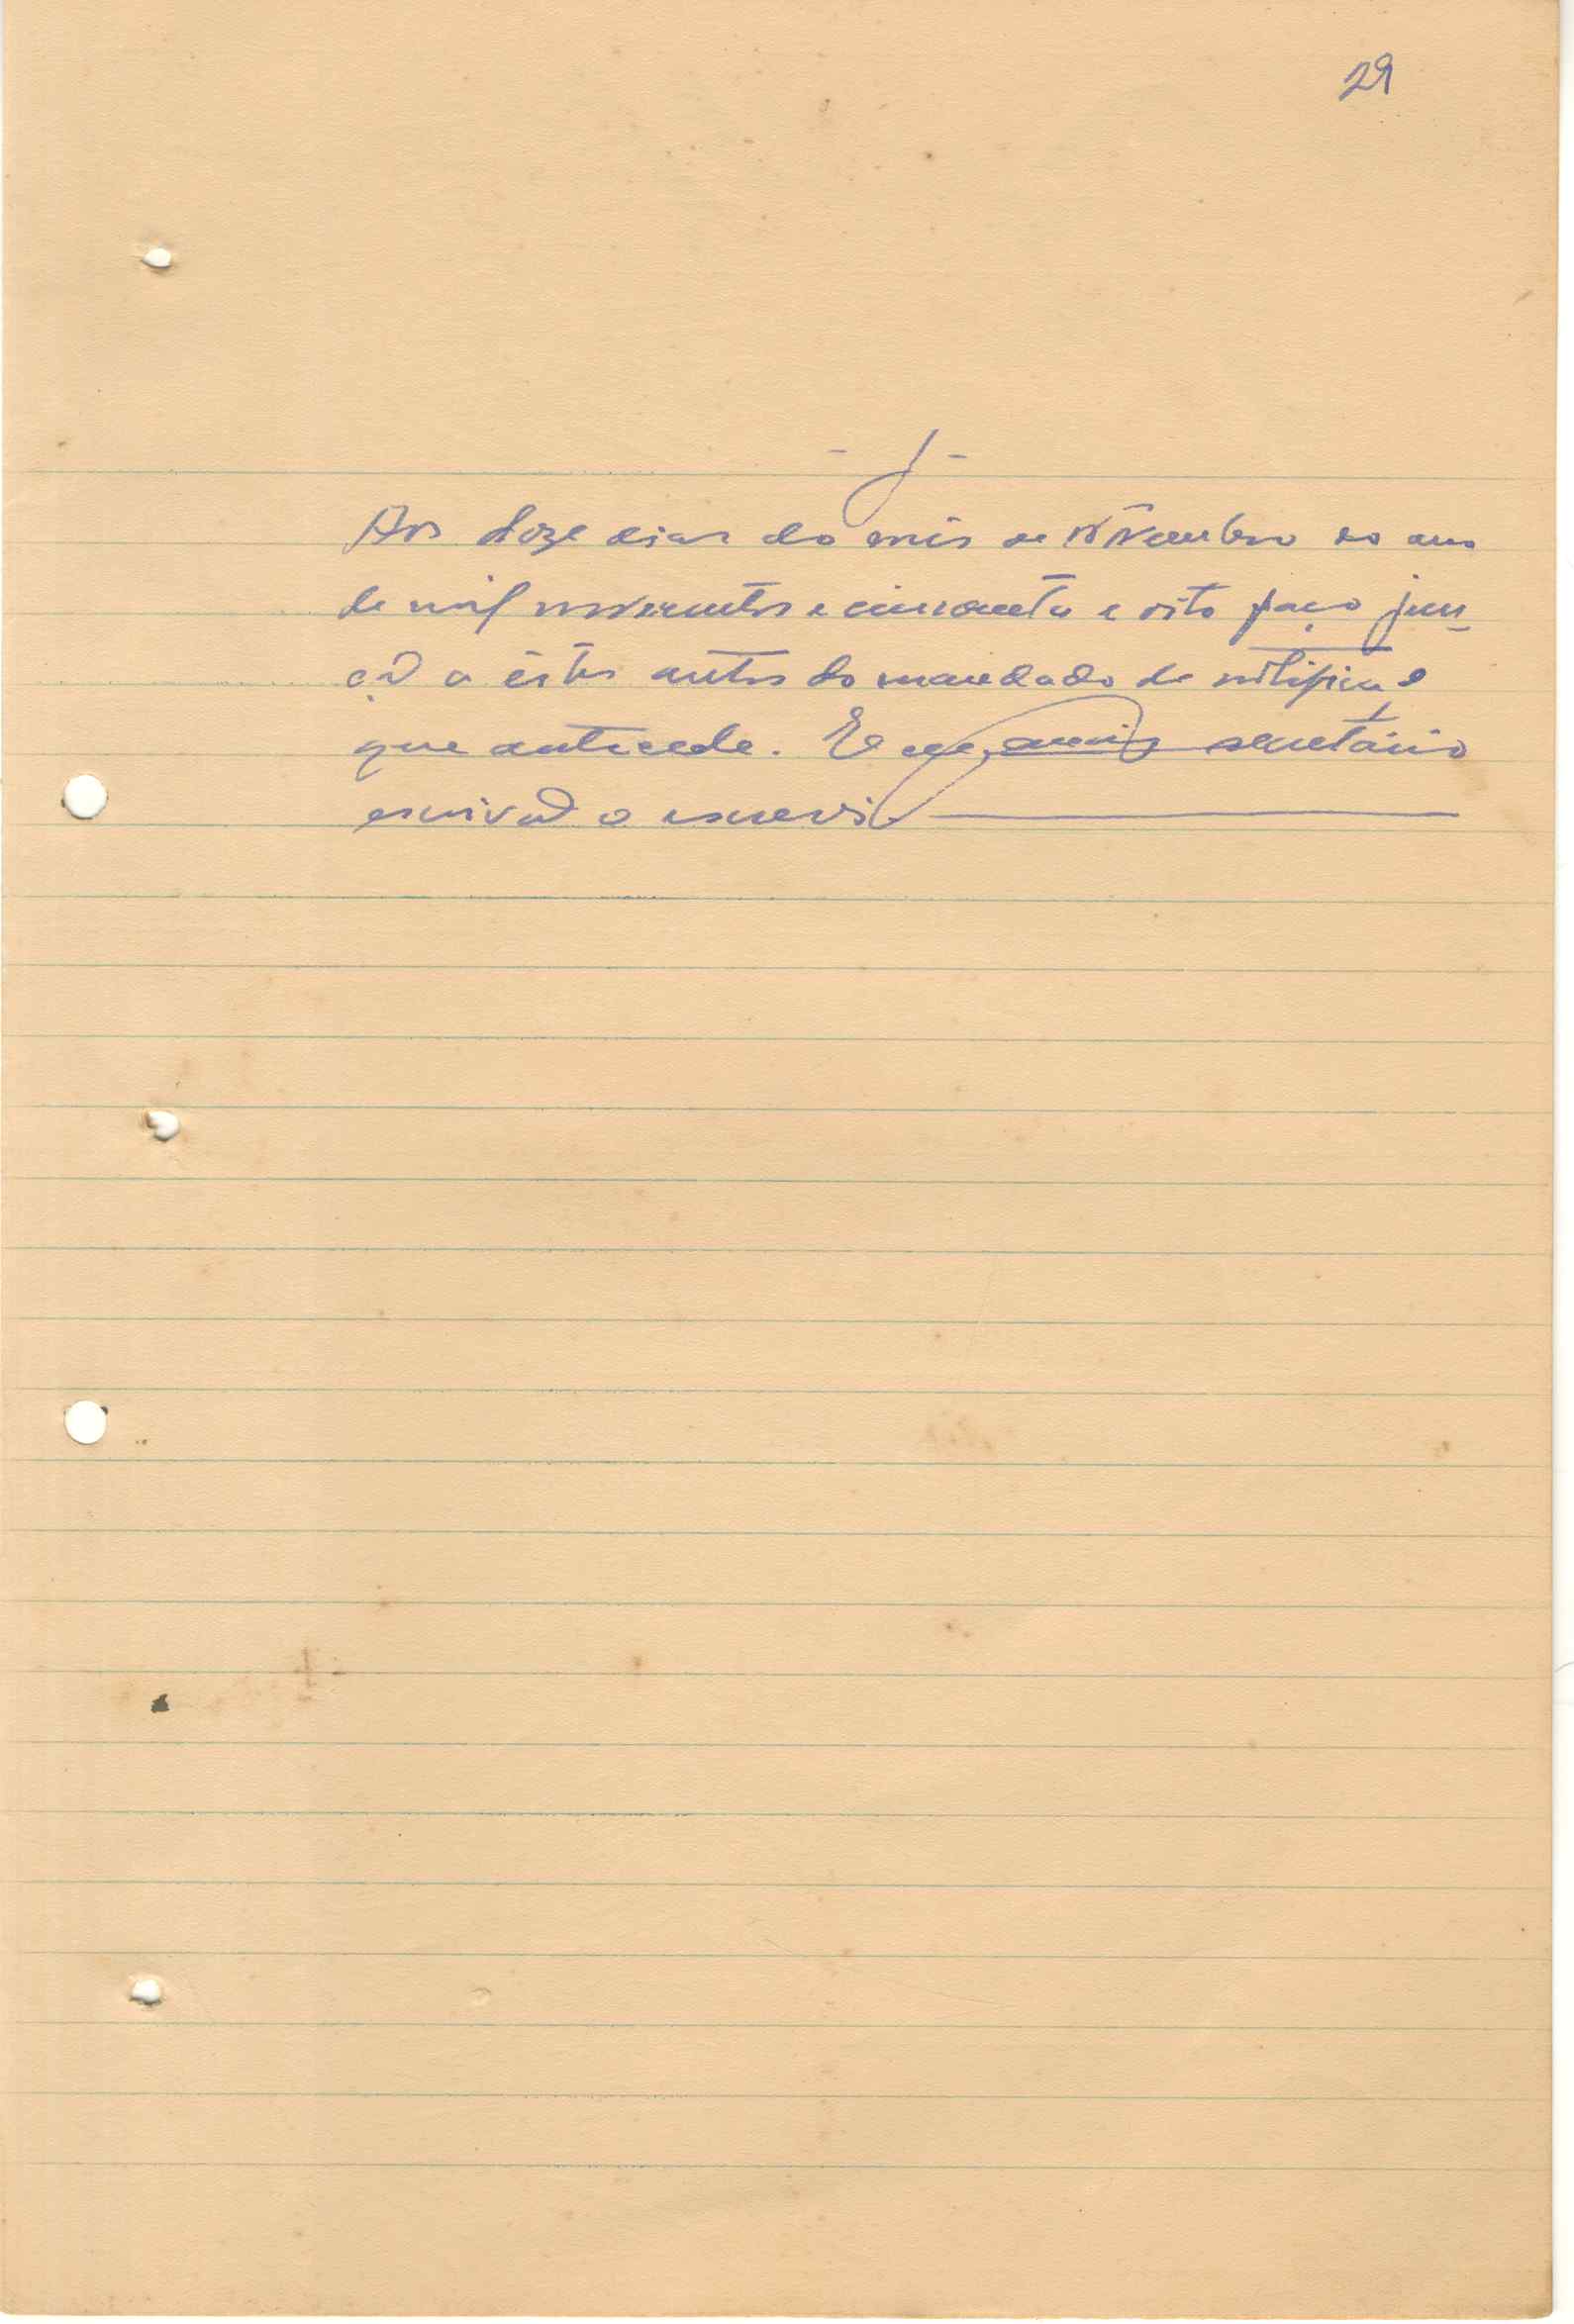 29
- J -
Aos doze dias do mês de Novembro do ano
de mil novecentos e cincoenta e oito faço jun_
ção a êstes autos do mandado de
que antecede. E eu, secretário
escrivão o escrevi.